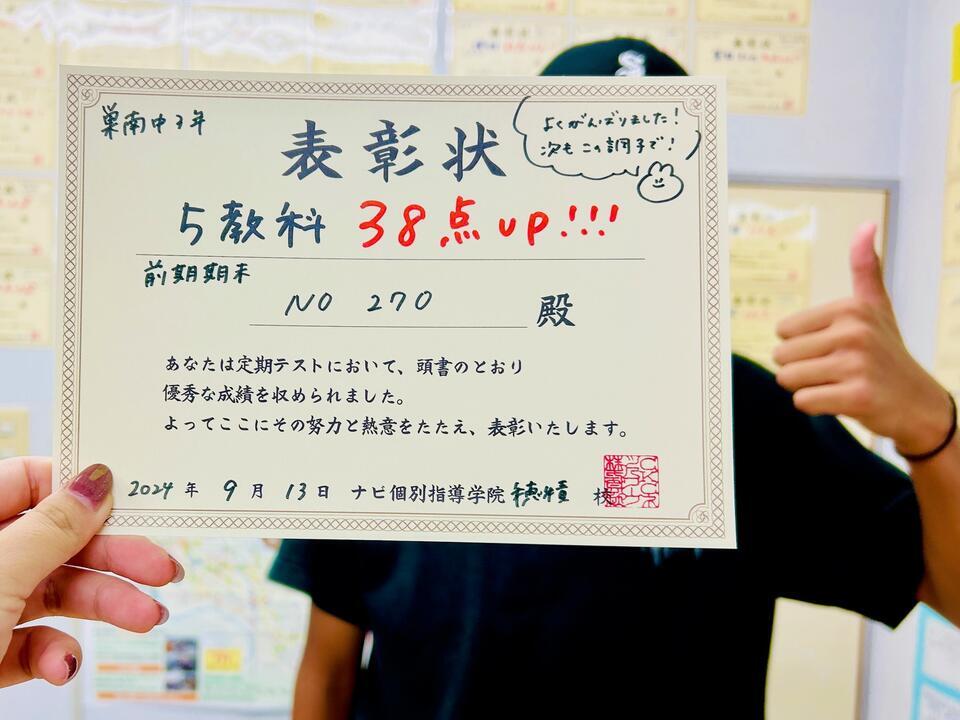 巣南中3年
表彰状
よくがんばりました!
次もこの調子で!
5教科 38点up!!!
前期期末
NO 270 殿
あなたは定期テストにおいて、頭書のとおり
優秀な成績を収められました。
よってここにその努力と熱意をたたえ、表彰いたします。
2024年 9月 13日 ナビ個別指導学院 穂積 校